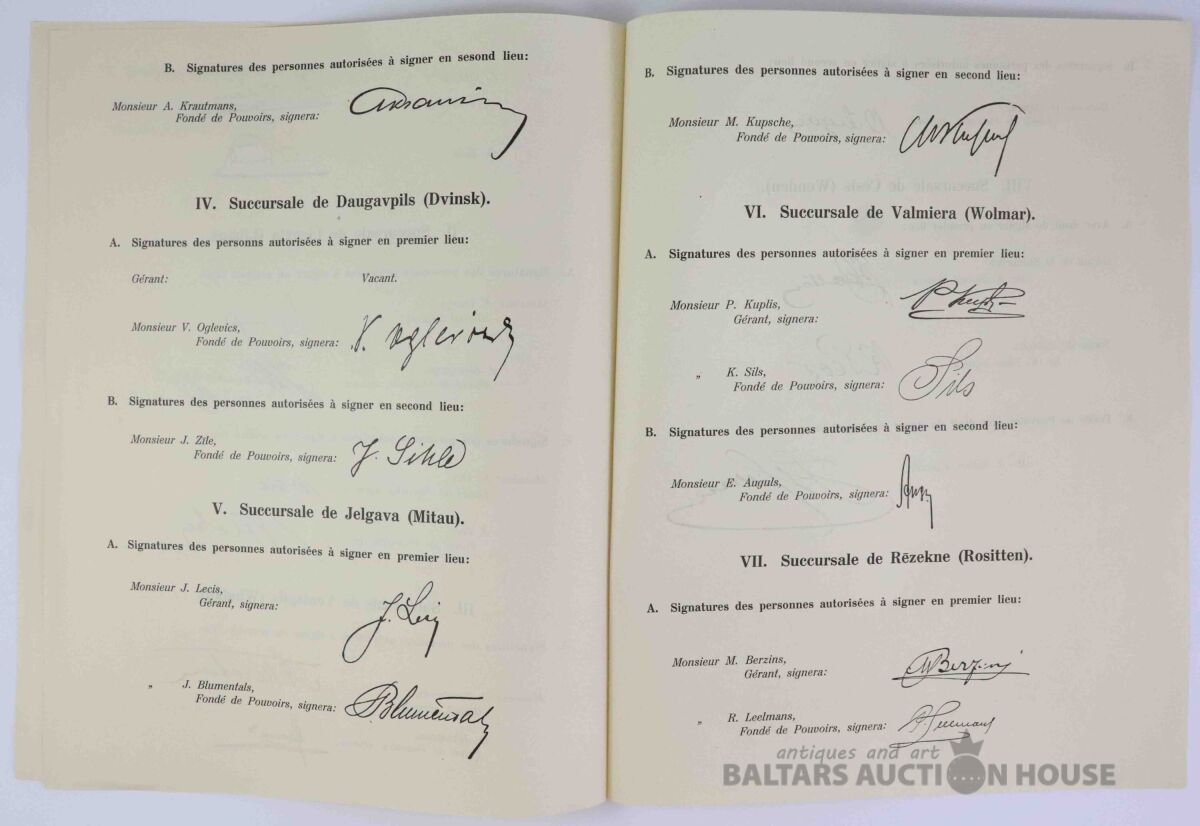 B. Signatures des personnes autorisées à signer en sesond lieu:
Monsieur A. Krautmans,
Fondé de Pouvoirs, signera:
IV. Succursale de Daugavpils (Dvinsk).
A. Signatures des personns autorisées à signer en premier lieu:
Gérant: Vacant.
Monsieur V. Oglevics,
Fondé de Pouvoirs, signera: V. Oglevics
B. Signatures des personnes autorisées à signer en second lieu:
Monsieur J. Zīle,
Fondé de Pouvoirs, signera: J. Sihle
V. Succursale de Jelgava (Mitau).
A. Signatures des personnes autorisées à signer en premier lieu:
Monsieur J. Lecis,
Gérant, signera:
„ J. Blumentals,
Fondé de Pouvoirs, signera: JBlumental
B. Signatures des personnes autorisées à signer en second lieu:
Monsieur M. Kupsche,
Fondé de Pouvoirs, signera:
VI. Succursale de Valmiera (Wolmar).
A. Signatures des personnes autorisées à signer en premier lieu:
Monsieur P. Kuplis,
Gérant, signera:
„ K. Sils,
Fondé de Pouvoirs, signera: Sils
B. Signatures des personnes autorisées à signer en second lieu:
Monsieur E. Auguls,
Fondé de Pouvoirs, signera:
VII. Succursale de Rēzekne (Rositten).
A. Signatures des personnes autorisées à signer en premier lieu:
Monsieur M. Berzins,
Gérant, signera: MBerzins
„ R. Leelmans,
Fondé de Pouvoirs, signera: R. Leelmans
antiques and art
BALTARS AUCTION HOUSE